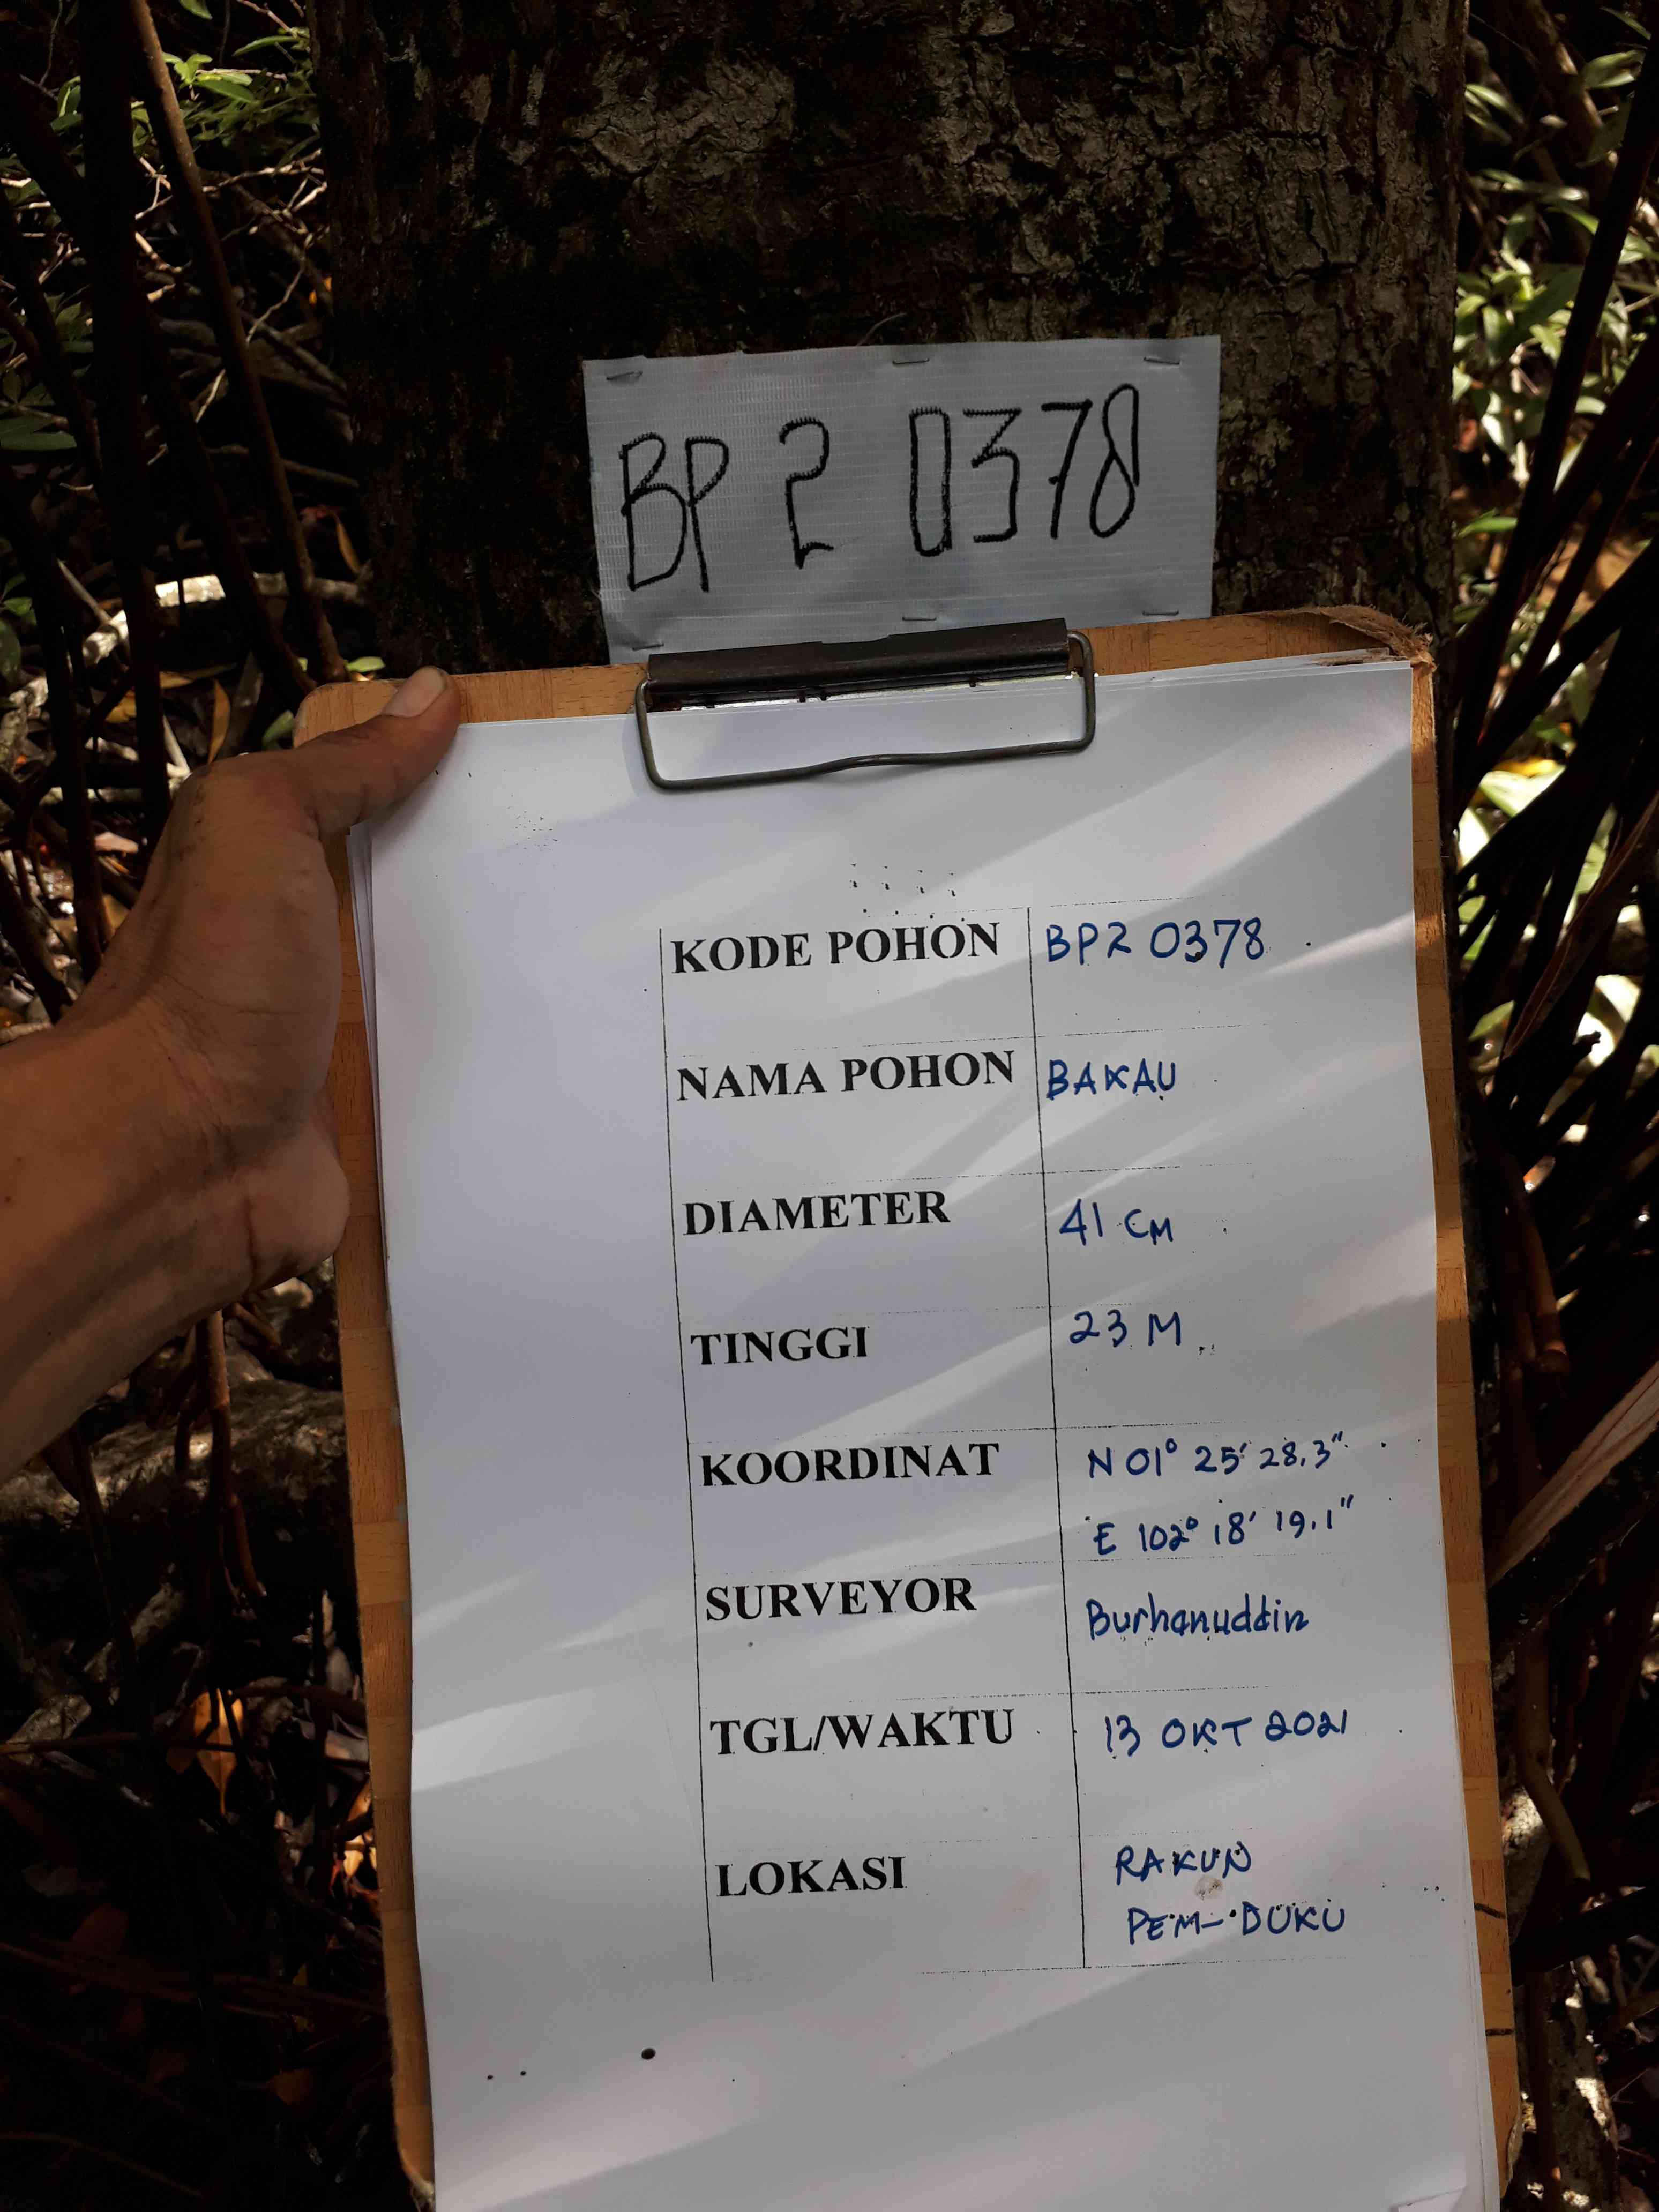 BP 2 0378
KODE POHON BP2 0378
NAMA POHON BAKAU
DIAMETER 41 CM
TINGGI 23 M
KOORDINAT N 01° 25' 28.3"
E 102° 18' 19.1"
SURVEYOR Burhanuddin
TGL/WAKTU 13 OKT 2021
LOKASI RAKUN
PEM-DUKU